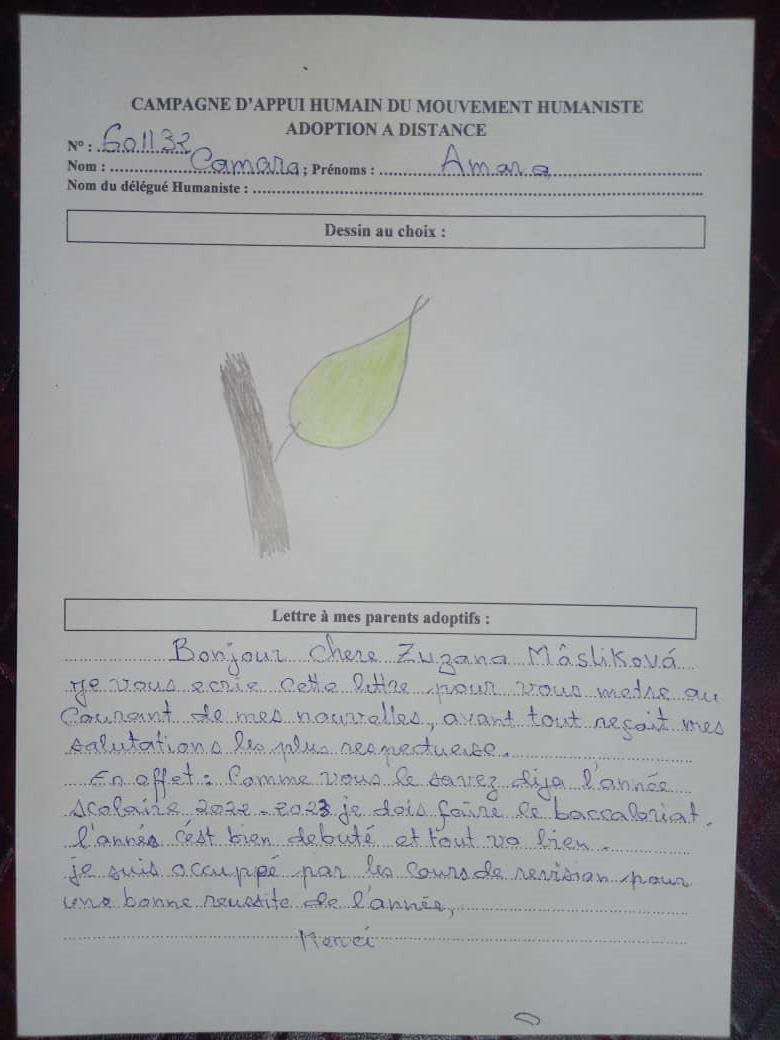 CAMPAGNE D'APPUI HUMAIN DU MOUVEMENT HUMANISTE
ADOPTION A DISTANCE
N° : 601132
Nom : Camara ; Prénoms : Amara
Nom du délégué Humaniste :
Dessin au choix :
Lettre à mes parents adoptifs :
Bonjour chere Zuzana Mâsliková
je vous ecrie cette lettre pour vous metre au
Courant de mes nouvelles, avant tout reçoit mes
salutations les plus respectueise.
En effet : Comme vous le savez dija l'année
scolaire 2022-2023 je dois faire le baccalariat.
l'année c'ést bien debuté et tout va bien.
je suis occuppé par les cours de revision pour
une bonne reussite de l'année,
Mercei